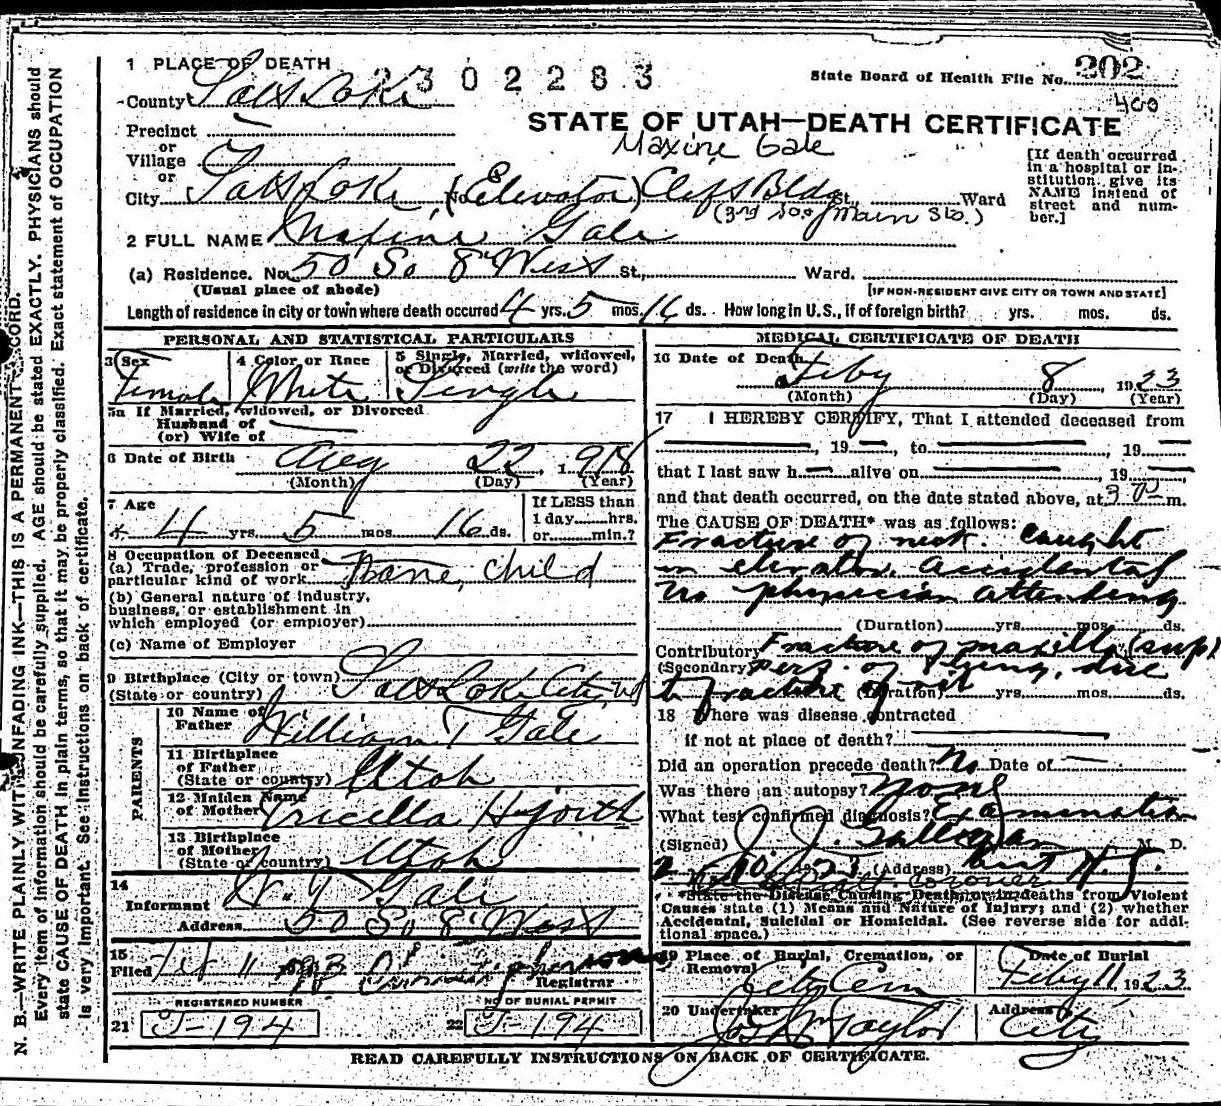 N. B.—WRITE PLAINLY WITH UNFADING INK—THIS IS A PERMANENT RECORD.
Every item of information should be carefully supplied. AGE should be stated EXACTLY. PHYSICIANS should
state CAUSE OF DEATH in plain terms, so that it may be properly classified. Exact statement of OCCUPATION
is very important. See Instructions on back of certificate.
1 PLACE OF DEATH
2302283
State Board of Health File No. 202
County Salt Lake
400
STATE OF UTAH—DEATH CERTIFICATE
Precinct
or
Village
or
Maxine Gale
[If death occurred
in a hospital or in-
stitution, give its
NAME instead of
street and num-
ber.]
City Salt Lake, (No. Elevator) Clift Bldg St., Ward
(3rd So & Main Sts.)
2 FULL NAME Maxine Gale
(a) Residence. No. 50 So 8" West St., Ward.
(Usual place of abode)
[IF NON-RESIDENT GIVE CITY OR TOWN AND STATE]
Length of residence in city or town where death occured 4 yrs. 5 mos. 16 ds. How long in U. S., if of foreign birth? yrs. mos. ds.
PERSONAL AND STATISTICAL PARTICULARS
3 Sex
Female
4 Color or Race
White
5 Single, Married, widowed,
or Divorced (write the word)
Single
5a If Married, widowed, or Divorced
Husband of
(or) Wife of
6 Date of Birth Aug 22, 1918
(Month) (Day) (Year)
7 Age
4 yrs. 5 mos 16 ds.
If LESS than
1 day......hrs.
or......min.?
8 Occupation of Deceased
(a) Trade, profession or
particular kind of work None, child
(b) General nature of industry,
business, or establishment in
which employed (or employer)
(c) Name of Employer
9 Birthplace (City or town) Salt Lake City Ut
(State or country)
PARENTS
10 Name of
Father William T Gale
11 Birthplace
of Father
(State or country) Utah
12 Maiden Name
of Mother Pricella Hjorth
13 Birthplace
of Mother
(State or country) Utah
14
Informant W. T Gale
Address 50 So 8" West
15
Filed 11
Registrar
REGISTERED NUMBER
21 J-194
NO OF BURIAL PERMIT
22 J-194
MEDICAL CERTIFICATE OF DEATH
16 Date of Death
Feby 8, 1923
(Month) (Day) (Year)
17 I HEREBY CERTIFY, That I attended deceased from
, 19 , to , 19
that I last saw h alive on , 19
and that death occurred, on the date stated above, at 3 P m.
The CAUSE OF DEATH* was as follows:
Fracture of neck. Caught
in elevator. Accidental
No physician attending
(Duration) yrs. mos. ds.
Contributory Fracture of maxilla (sup)
(Secondary) of lung, due
to fracture of
(Duration) yrs. mos. ds.
18 Where was disease contracted
if not at place of death?
Did an operation precede death? No Date of
Was there an autopsy? None
What test confirmed diagnosis? Examination
(Signed) J. J. Galligan M. D.
2 10, 1923 (Address)
*State the Disease Causing Death, or in deaths from Violent
Causes state (1) Means and Nature of Injury; and (2) whether
Accidental, Suicidal or Homicidal. (See reverse side for addi-
tional space.)
19 Place of Burial, Cremation, or
Removal
City Cem
Date of Burial
Feby 11 1923
20 Undertaker
Jos Wm Taylor
Address
City
READ CAREFULLY INSTRUCTIONS ON BACK OF CERTIFICATE.